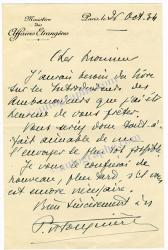 Ministère
des
Affaires Etrangères
Paris, le 24 Oct. 34
Cher Monsieur
J'aurais besoin du livre
sur les
Ambassadeurs que j'ai été
heureux de vous prêter.
Vous seriez donc tout-à-
fait aimable de me
l'envoyer le plus tôt possible
Je vous le confierai de
nouveau, plus tard, s'il vous
est encore nécessaire.
Bien sincèrement à vous